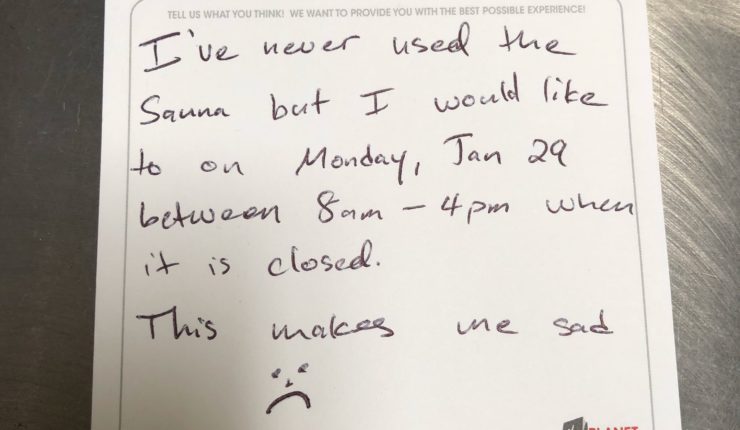 TELL US WHAT YOU THINK! WE WANT TO PROVIDE YOU WITH THE BEST POSSIBLE EXPERIENCE!
I've never used the
Sauna but I would like
to on Monday, Jan 29
between 8am - 4pm when
it is closed.
This makes me sad
PLANET